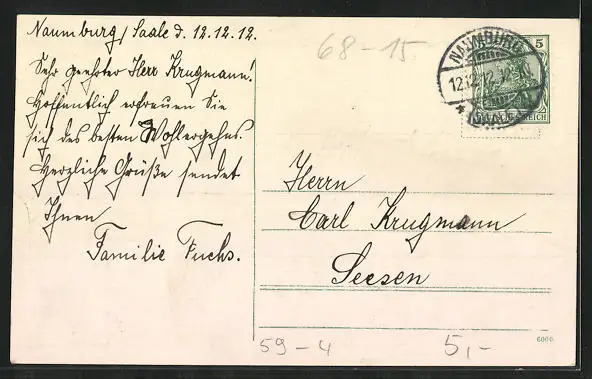 Naumburg/Saale d. 12.12.12.
Sehr geehrter Herr Krugmann!
Hoffentlich erfreuen Sie
sich des besten Wohlergehns.
Herzliche Grüße sendet
Ihnen
Familie Fuchs.
68-15
NAUMBURG
12.12.12
5
REICH
Herrn
Carl Krugmann
Seesen
59-4
5,-
6000